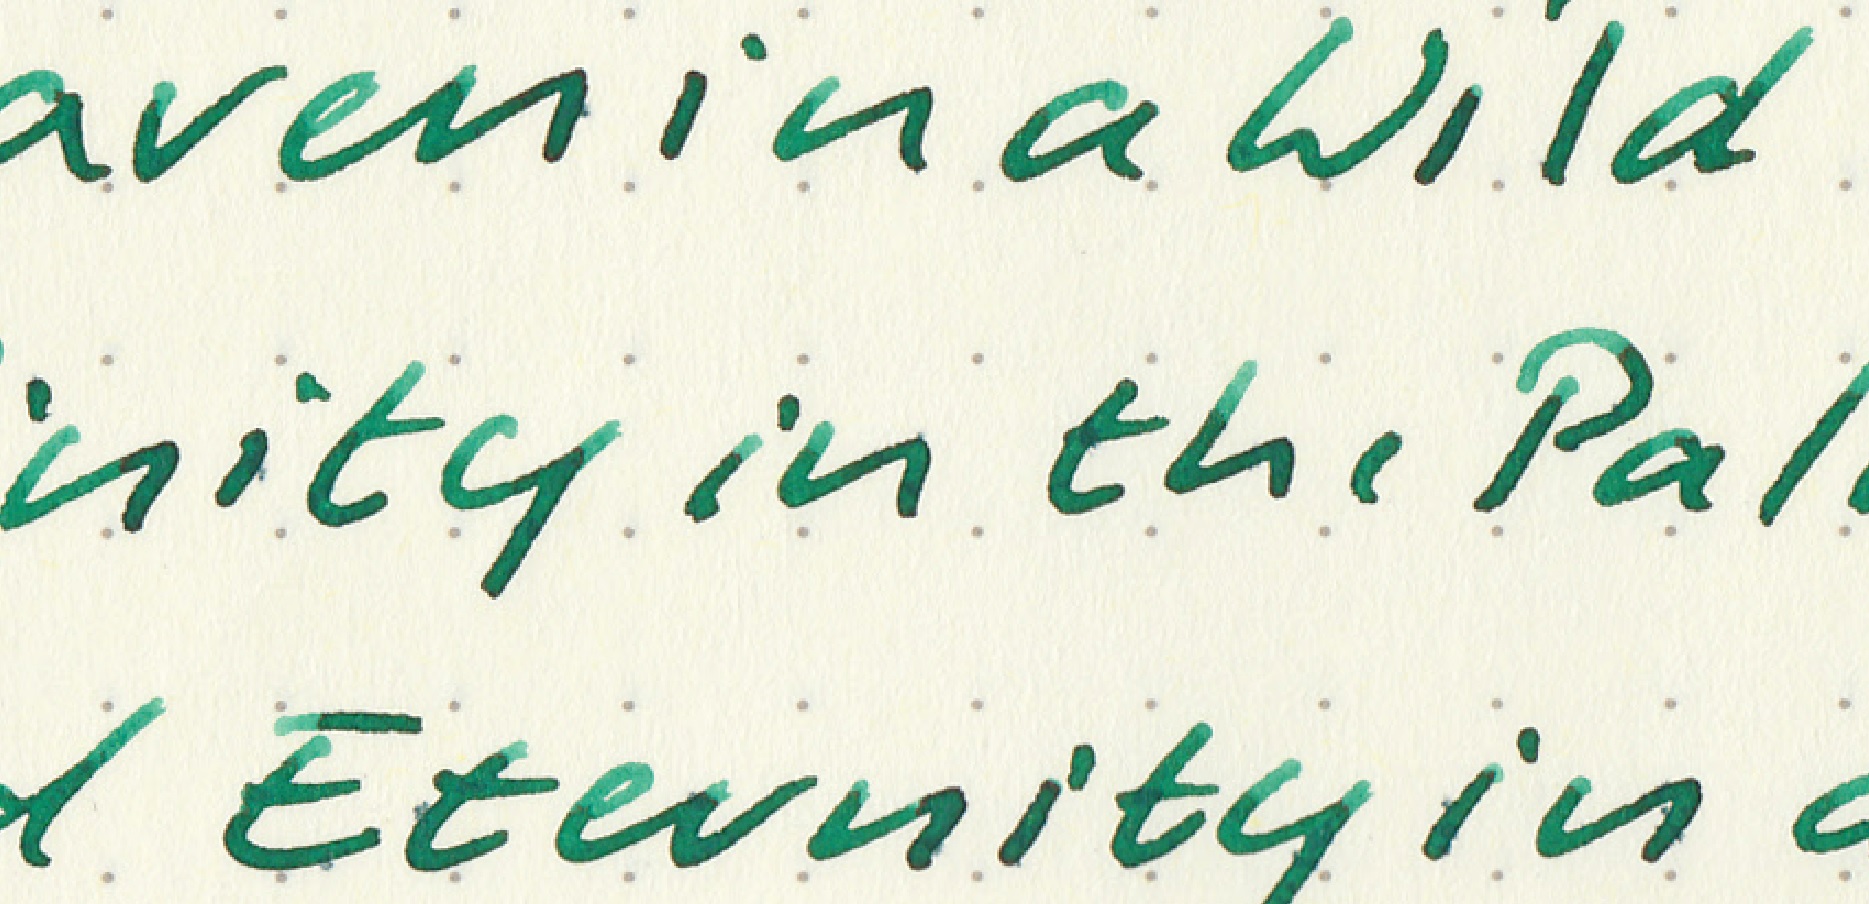 aven in a Wild
inity in the Pal
d Eternity in a